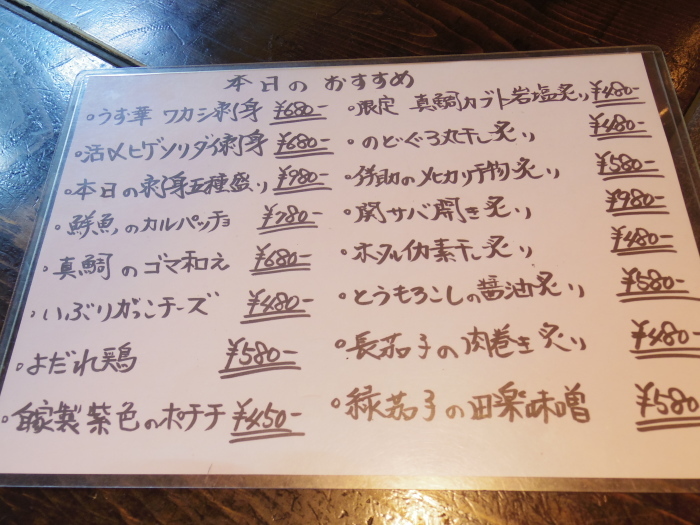 本日のおすすめ
・うす葉 ワカシ刺身 ¥680-
・活〆ヒゲソリダイ刺身 ¥680-
・本日の刺身五種盛り ¥980-
・鮮魚のカルパッチョ ¥780-
・真鯛のゴマ和え ¥680-
・いぶりがっこチーズ ¥480-
・よだれ鶏 ¥580-
・自家製紫色のポテチ ¥450-
・限定 真鯛カブト岩塩炙り ¥480-
・のどぐろ丸干し炙り ¥480-
・のメヒカリ干物炙り ¥580-
・関サバ開き炙り ¥980-
・ホタルイカ素干し炙り ¥480-
・とうもろこしの醤油炙り ¥580-
・長茄子の肉巻き炙り ¥480-
・緑茄子の田楽味噌 ¥580